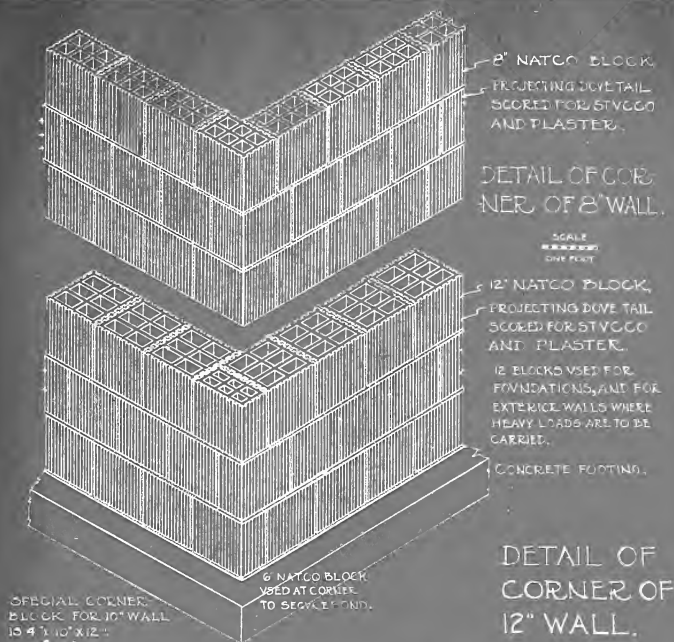 8" NATCO BLOCK
PROJECTING DOVETAIL
SCORED FOR STVCCO
AND PLASTER.
DETAIL OF COR-
NER OF 8" WALL.
SCALE
ONE FOOT
12" NATCO BLOCK,
PROJECTING DOVE TAIL
SCORED FOR STVCCO
AND PLASTER.
12 BLOCKS VSED FOR
FOVNDATIONS, AND FOR
EXTERIOR WALLS WHERE
HEAVY LOADS ARE TO BE
CARRIED.
CONCRETE FOOTING.
6" NATCO BLOCK
VSED AT CORNER
TO SECVRE BOND.
SPECIAL CORNER
BLOCK FOR 10" WALL
IS 4" X 10" X 12".
DETAIL OF
CORNER OF
12" WALL.